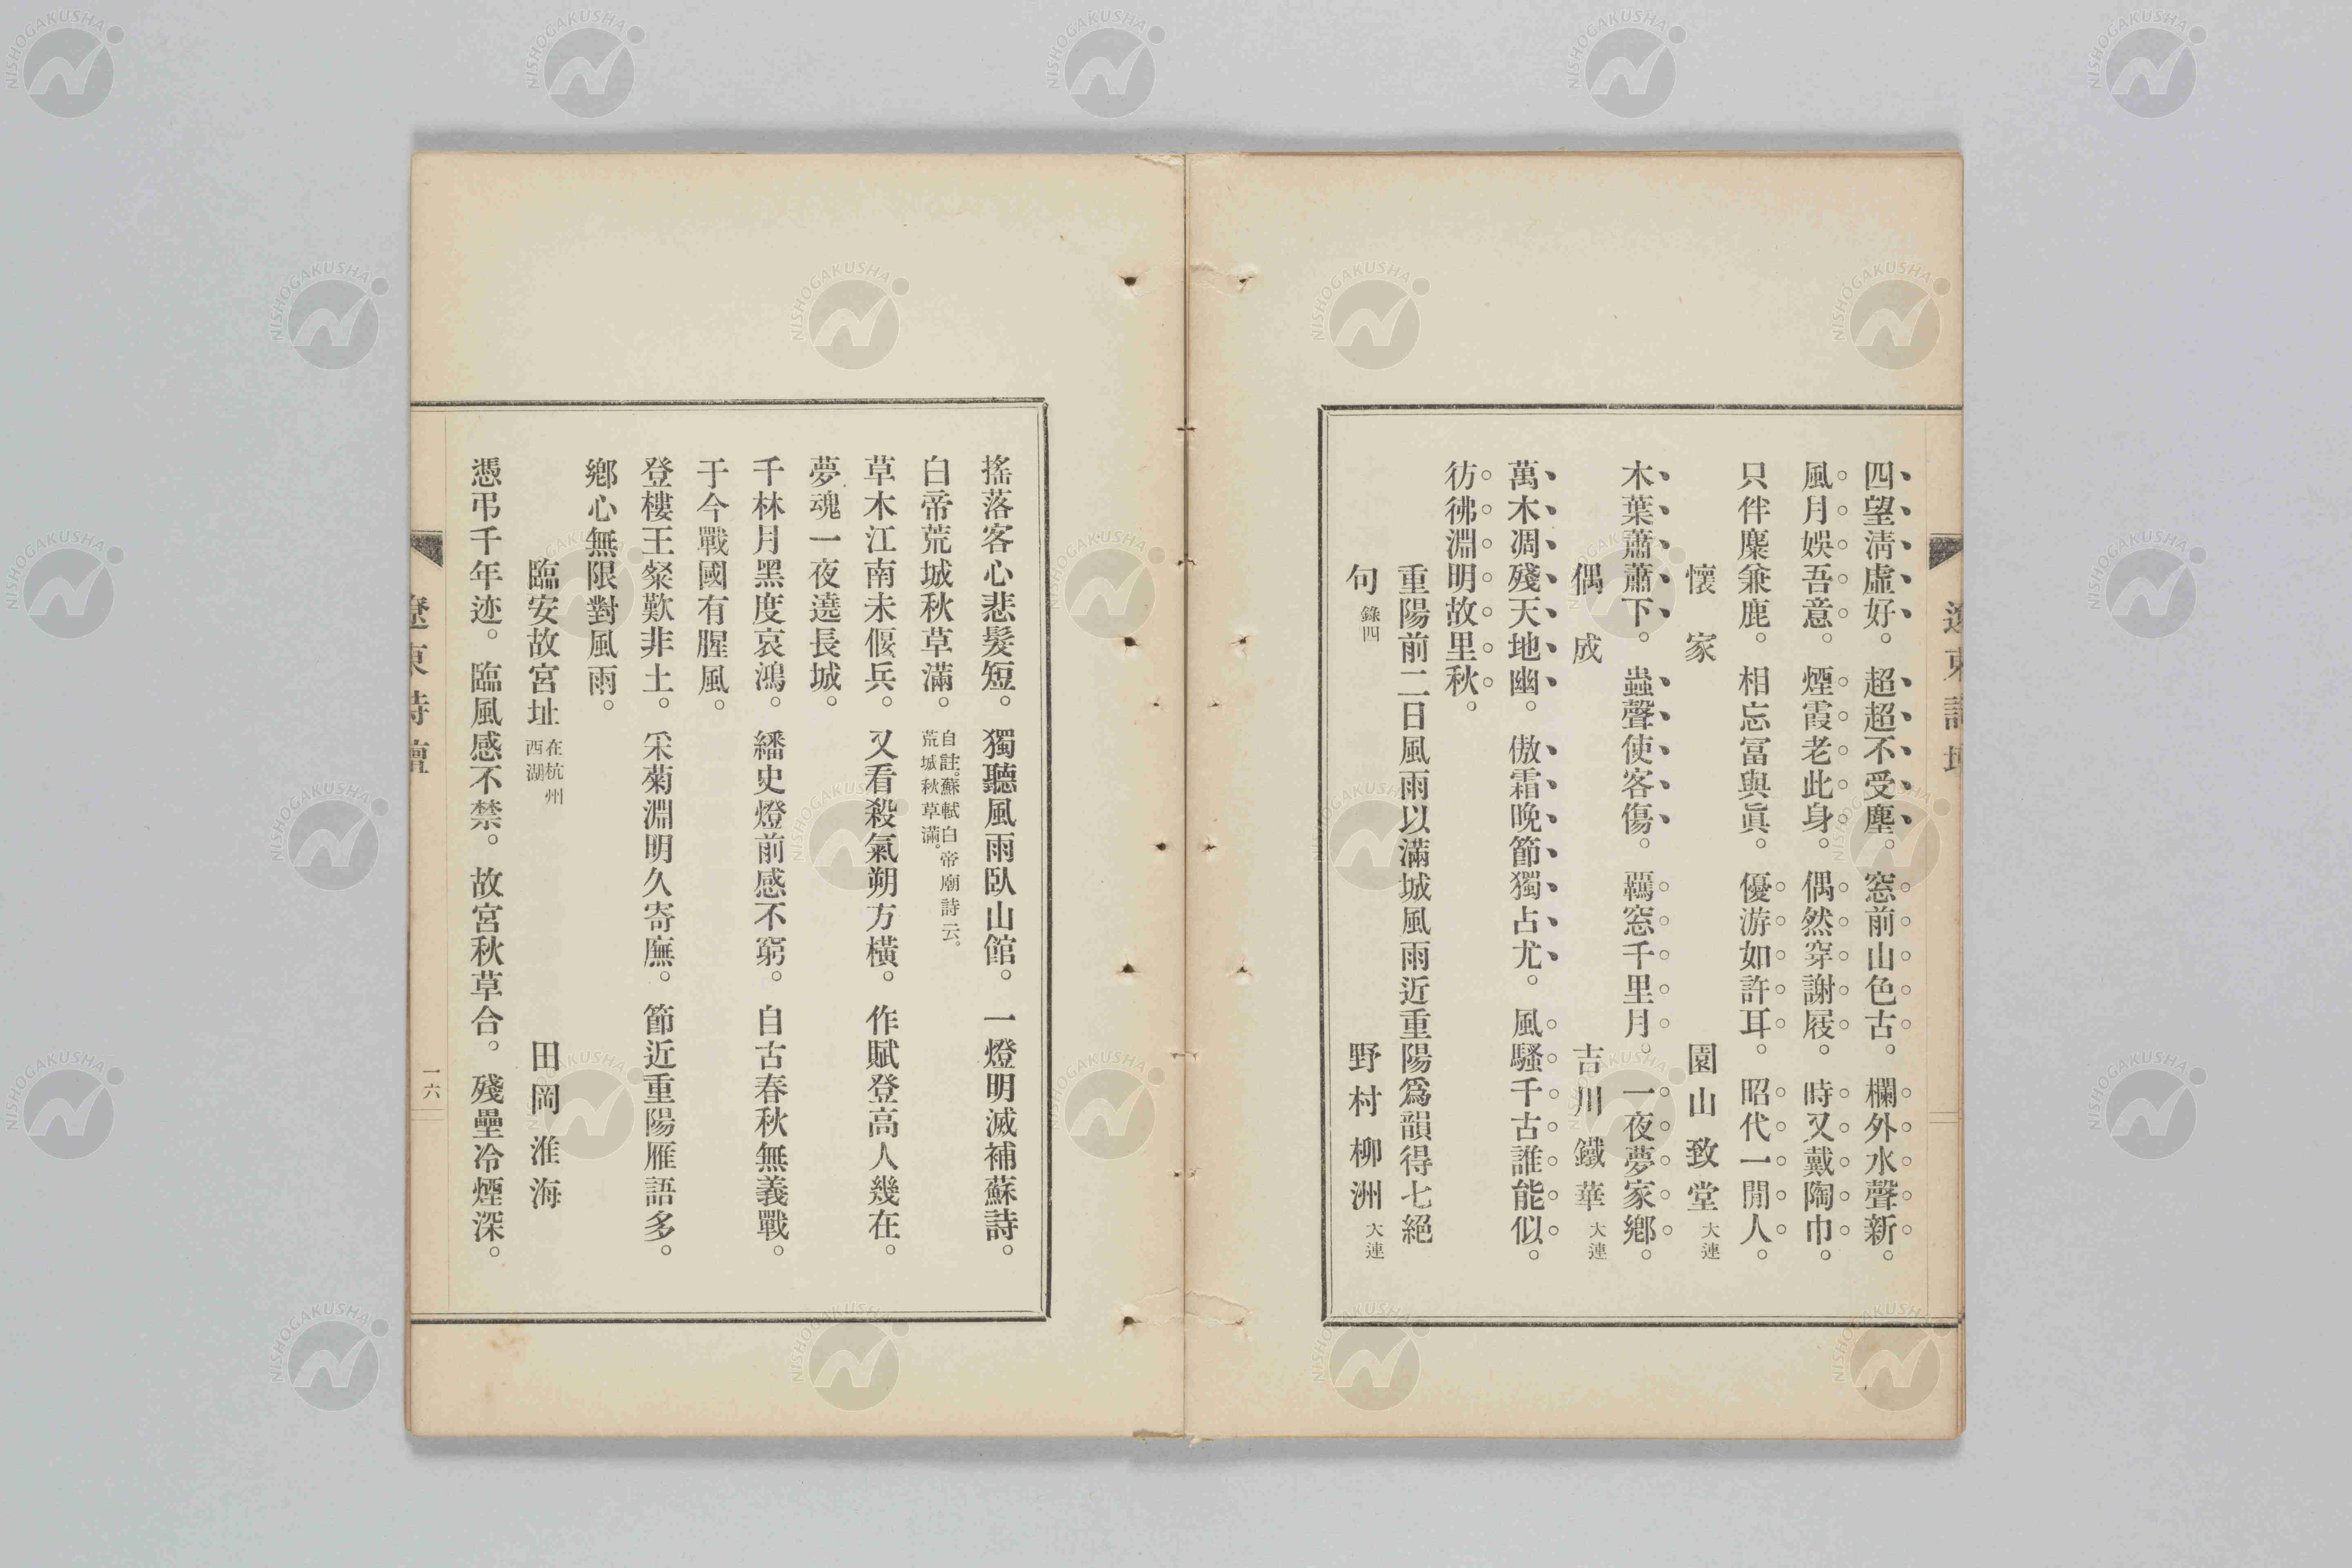 四望淸虛好。超超不受塵。窓前山色古。欄外水聲新。
風月娛吾意。煙霞老此身。偶然穿謝屐。時又戴陶巾。
只伴麋兼鹿。相忘冨與眞。優游如許耳。昭代一閒人。
懷家 園山致堂 大連
木葉蕭蕭下。蟲聲使客傷。羈窓千里月。一夜夢家鄉。
偶成 吉川鐵華 大連
萬木凋殘天地幽。傲霜晚節獨占尤。風騷千古誰能似。
彷彿淵明故里秋。
重陽前二日風雨以滿城風雨近重陽爲韻得七絕
句 錄四 野村柳洲 大連
搖落客心悲髮短。獨聽風雨臥山館。一燈明滅補蘇詩。
白帝荒城秋草滿。自註。蘇軾白帝廟詩云。荒城秋草滿。
草木江南未偃兵。又看殺氣朔方橫。作賦登高人幾在。
夢魂一夜遶長城。
千林月黑度哀鴻。繙史燈前感不窮。自古春秋無義戰。
于今戰國有腥風。
登樓王粲歎非土。采菊淵明久寄廡。節近重陽雁語多。
鄉心無限對風雨。
臨安故宮址 在杭州西湖 田岡淮海
憑弔千年迹。臨風感不禁。故宮秋草合。殘壘冷煙深。
遼東詩壇
一六